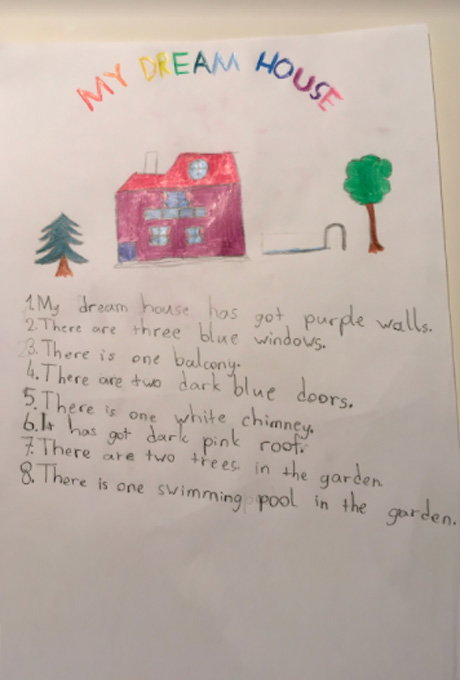 MY DREAM HOUSE
1.My dream house has got purple walls.
2.There are three blue windows.
3.There is one balcony.
4.There are two dark blue doors.
5.There is one white chimney.
6.It has got dark pink roof.
7.There are two trees in the garden
8.There is one swimming pool in the garden.